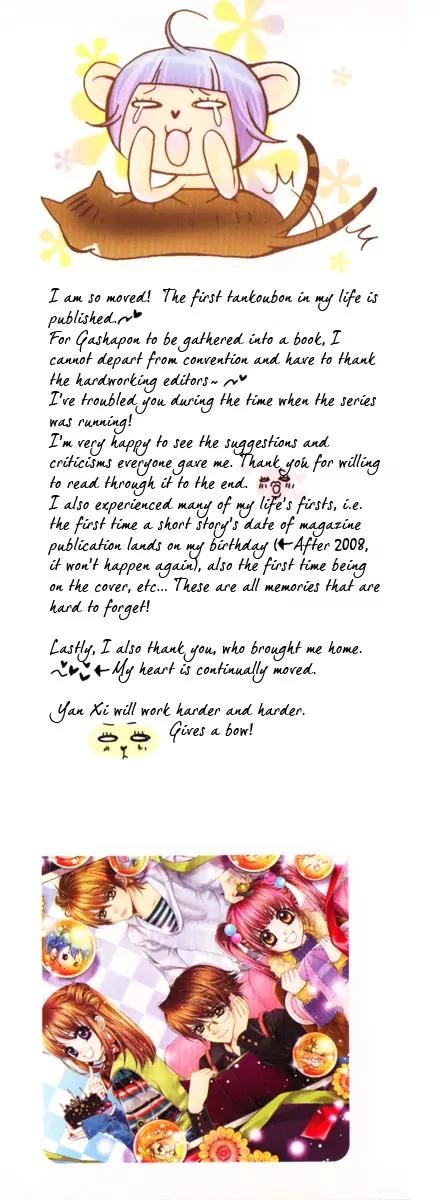 I am so moved! The first tankoubon in my life is
published.~♥
For Gashapon to be gathered into a book, I
cannot depart from convention and have to thank
the hardworking editors~ ~♥
I've troubled you during the time when the series
was running!
I'm very happy to see the suggestions and
criticisms everyone gave me. Thank you for willing
to read through it to the end.
I also experienced many of my life's firsts, i.e.
the first time a short story's date of magazine
publication lands on my birthday (←After 2008,
it won't happen again), also the first time being
on the cover, etc... These are all memories that are
hard to forget!
Lastly, I also thank you, who brought me home.
~♥♥♥←My heart is continually moved.
Yan Xi will work harder and harder.
Gives a bow!